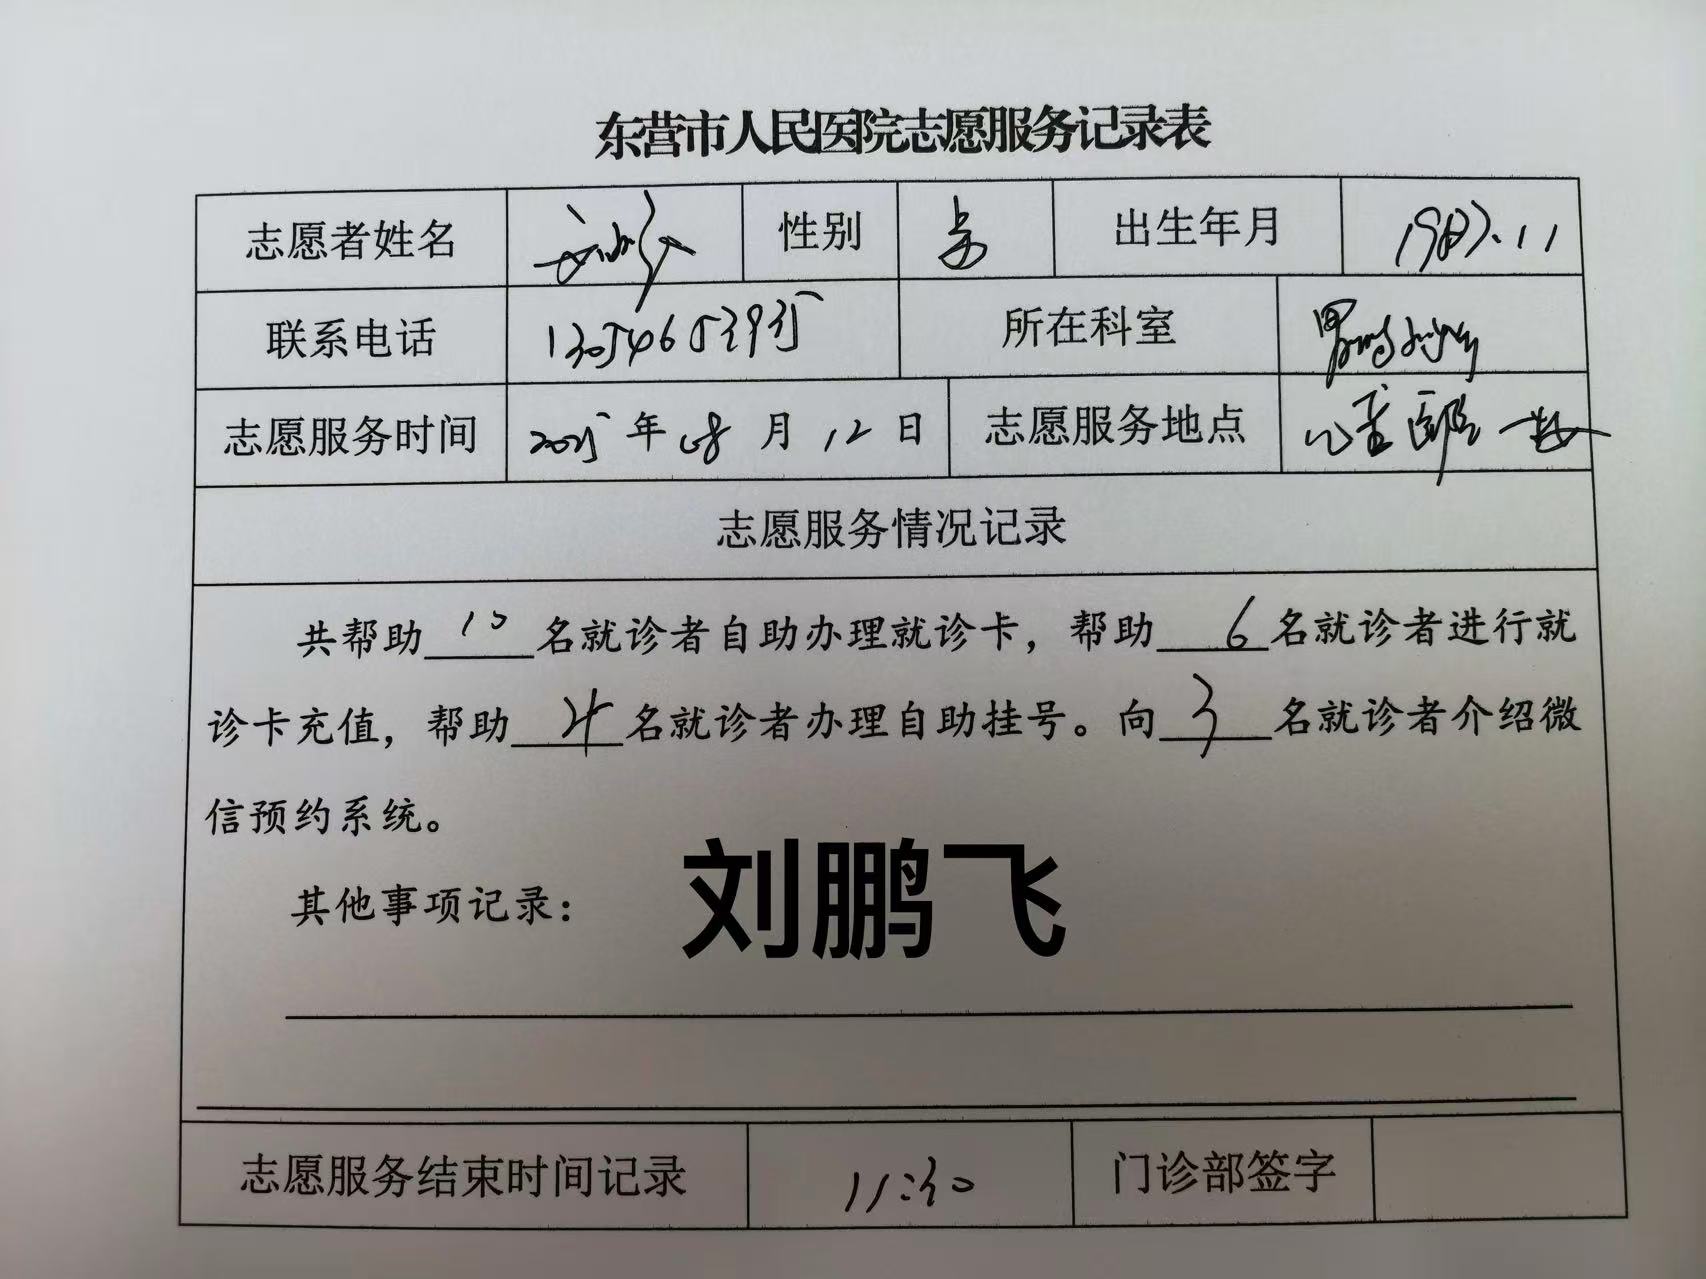 东营市人民医院志愿服务记录表
志愿者姓名 性别 男 出生年月 1987.11
联系电话 所在科室 胃肠外科
志愿服务时间 2025年08月12日 志愿服务地点
志愿服务情况记录
共帮助10名就诊者自助办理就诊卡，帮助6名就诊者进行就
诊卡充值，帮助4名就诊者办理自助挂号。向3名就诊者介绍微
信预约系统。
其他事项记录：
刘鹏飞
志愿服务结束时间记录 11:30 门诊部签字